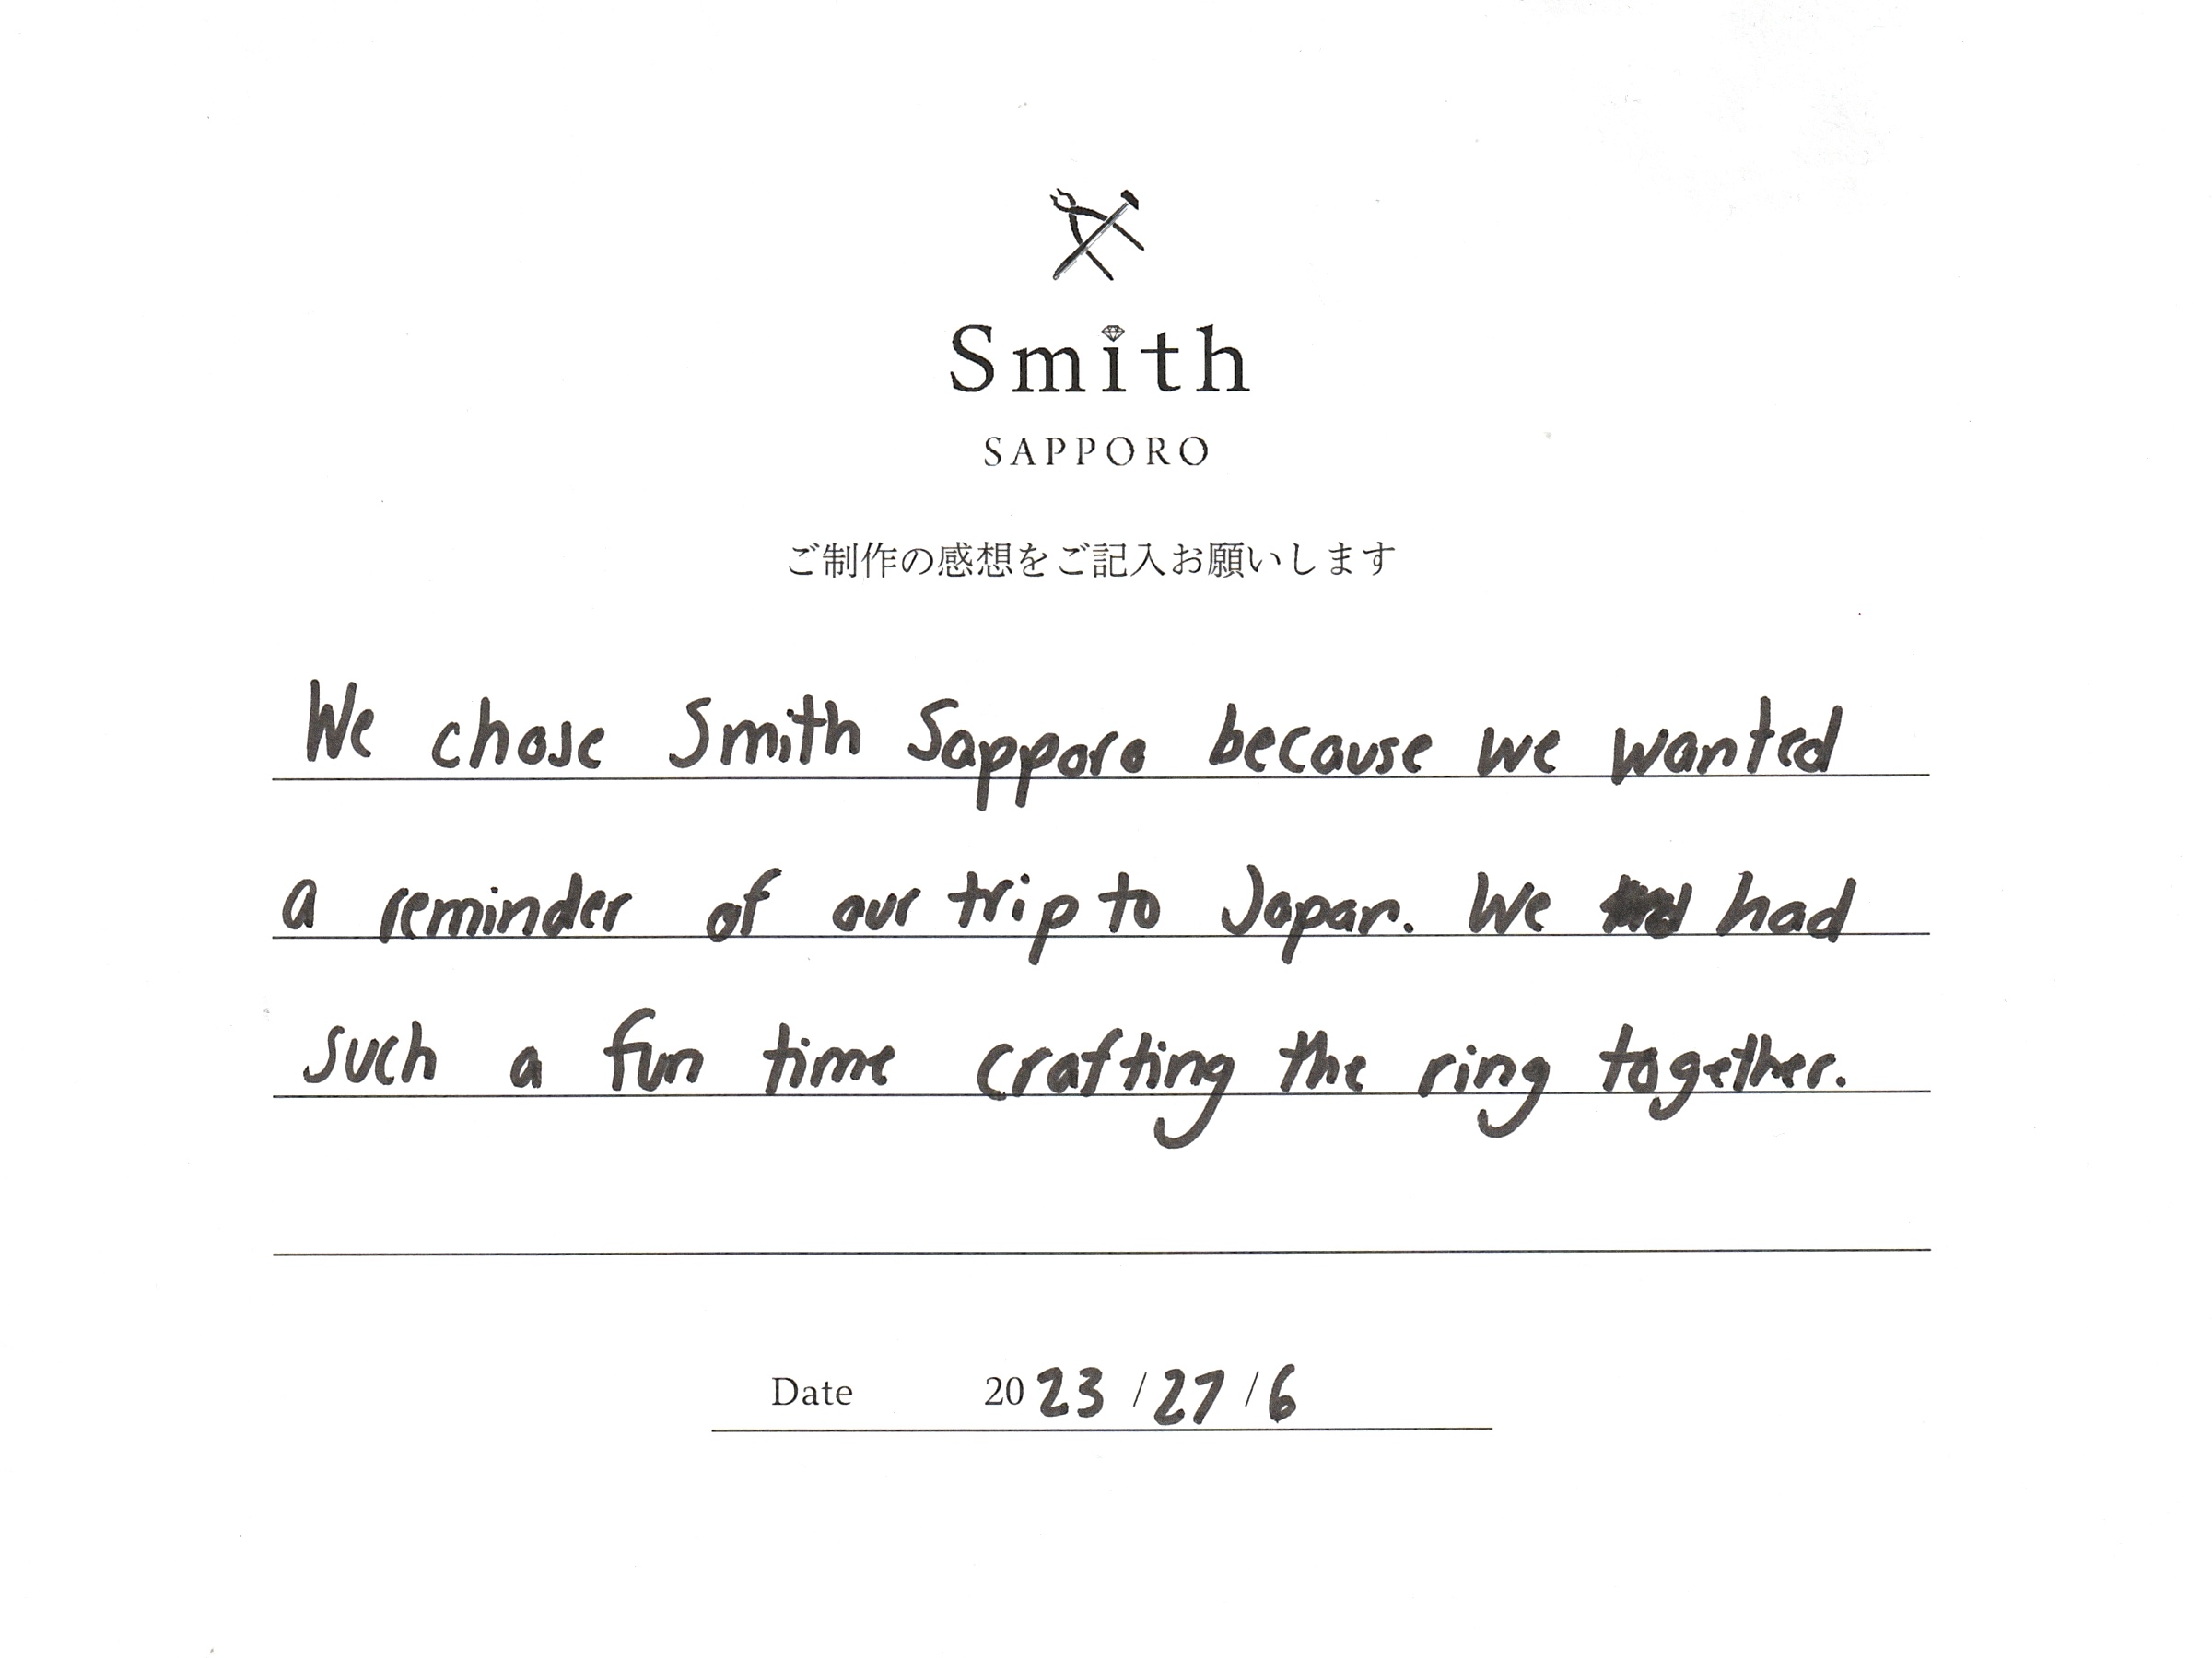 Smith
SAPPORO
ご制作の感想をご記入お願いします
We chose Smith Sapporo because we wanted
a reminder of our trip to Japan. We had
such a fun time crafting the ring together.
Date 2023 / 27 / 6